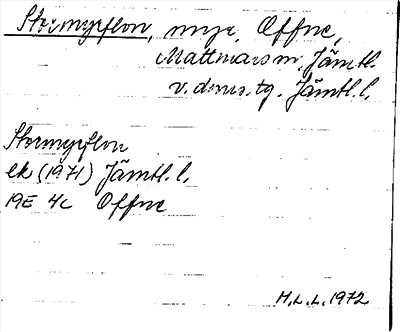 Stormyrflon, myr, Offne,
Mattmars sn, Jämtl.
v. doms. tg. Jämtl. l.
Stormyrflon
ek (1971) Jämtl. l.
19E 4c Offne
M.L.L. 1972